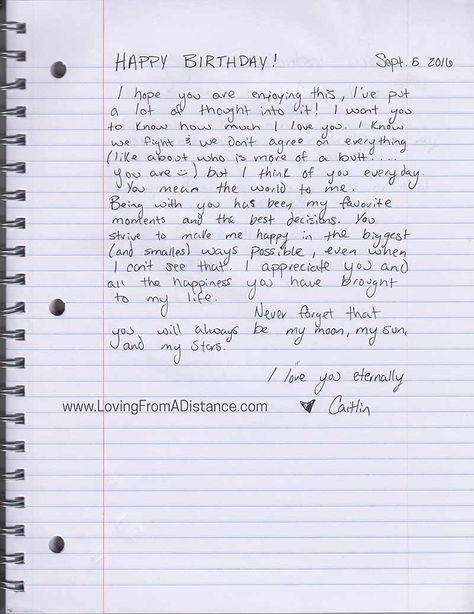 HAPPY BIRTHDAY! Sept. 5 2016
I hope you are enjoying this, I've put
a lot of thought into it! I want you
to know how much I love you. I know
we fight & we don't agree on everything
(like about who is more of a butt....
you are :)) but I think of you everyday.
You mean the world to me.
Being with you has been my favorite
moments and the best decisions. You
strive to make me happy in the biggest
(and smalles) ways possible, even when
I can't see that. I appreciate you and
all the happiness you have brought
to my life.
Never forget that
you will always be my moon, my sun,
and my stars.
I love you eternally
www.LovingFromADistance.com ♥ Caitlin